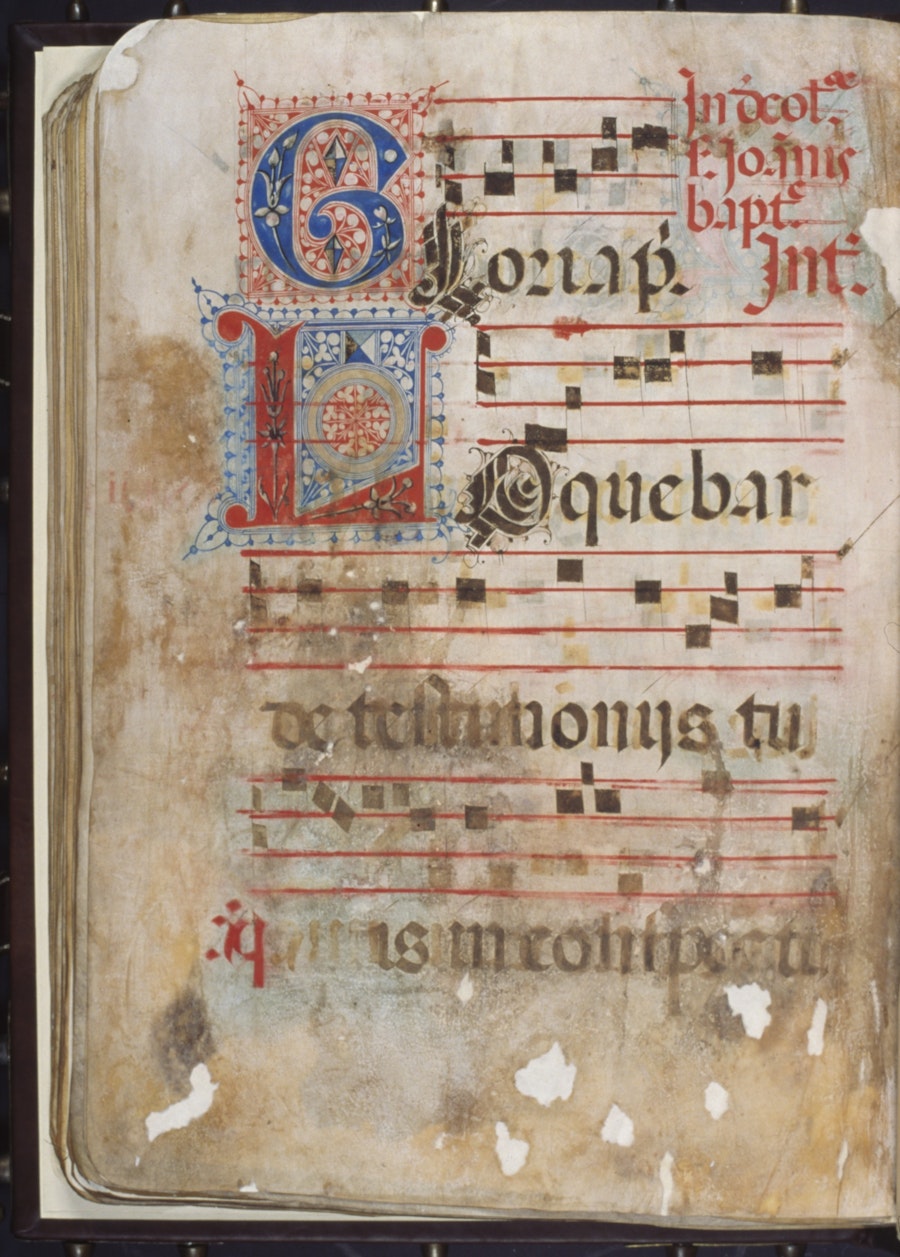 In dcolᵉ
S. Joānis
baptᵉ
Intᵉ:
Gloria p.
Loquebar
de testimonijs tu
is in conspectu